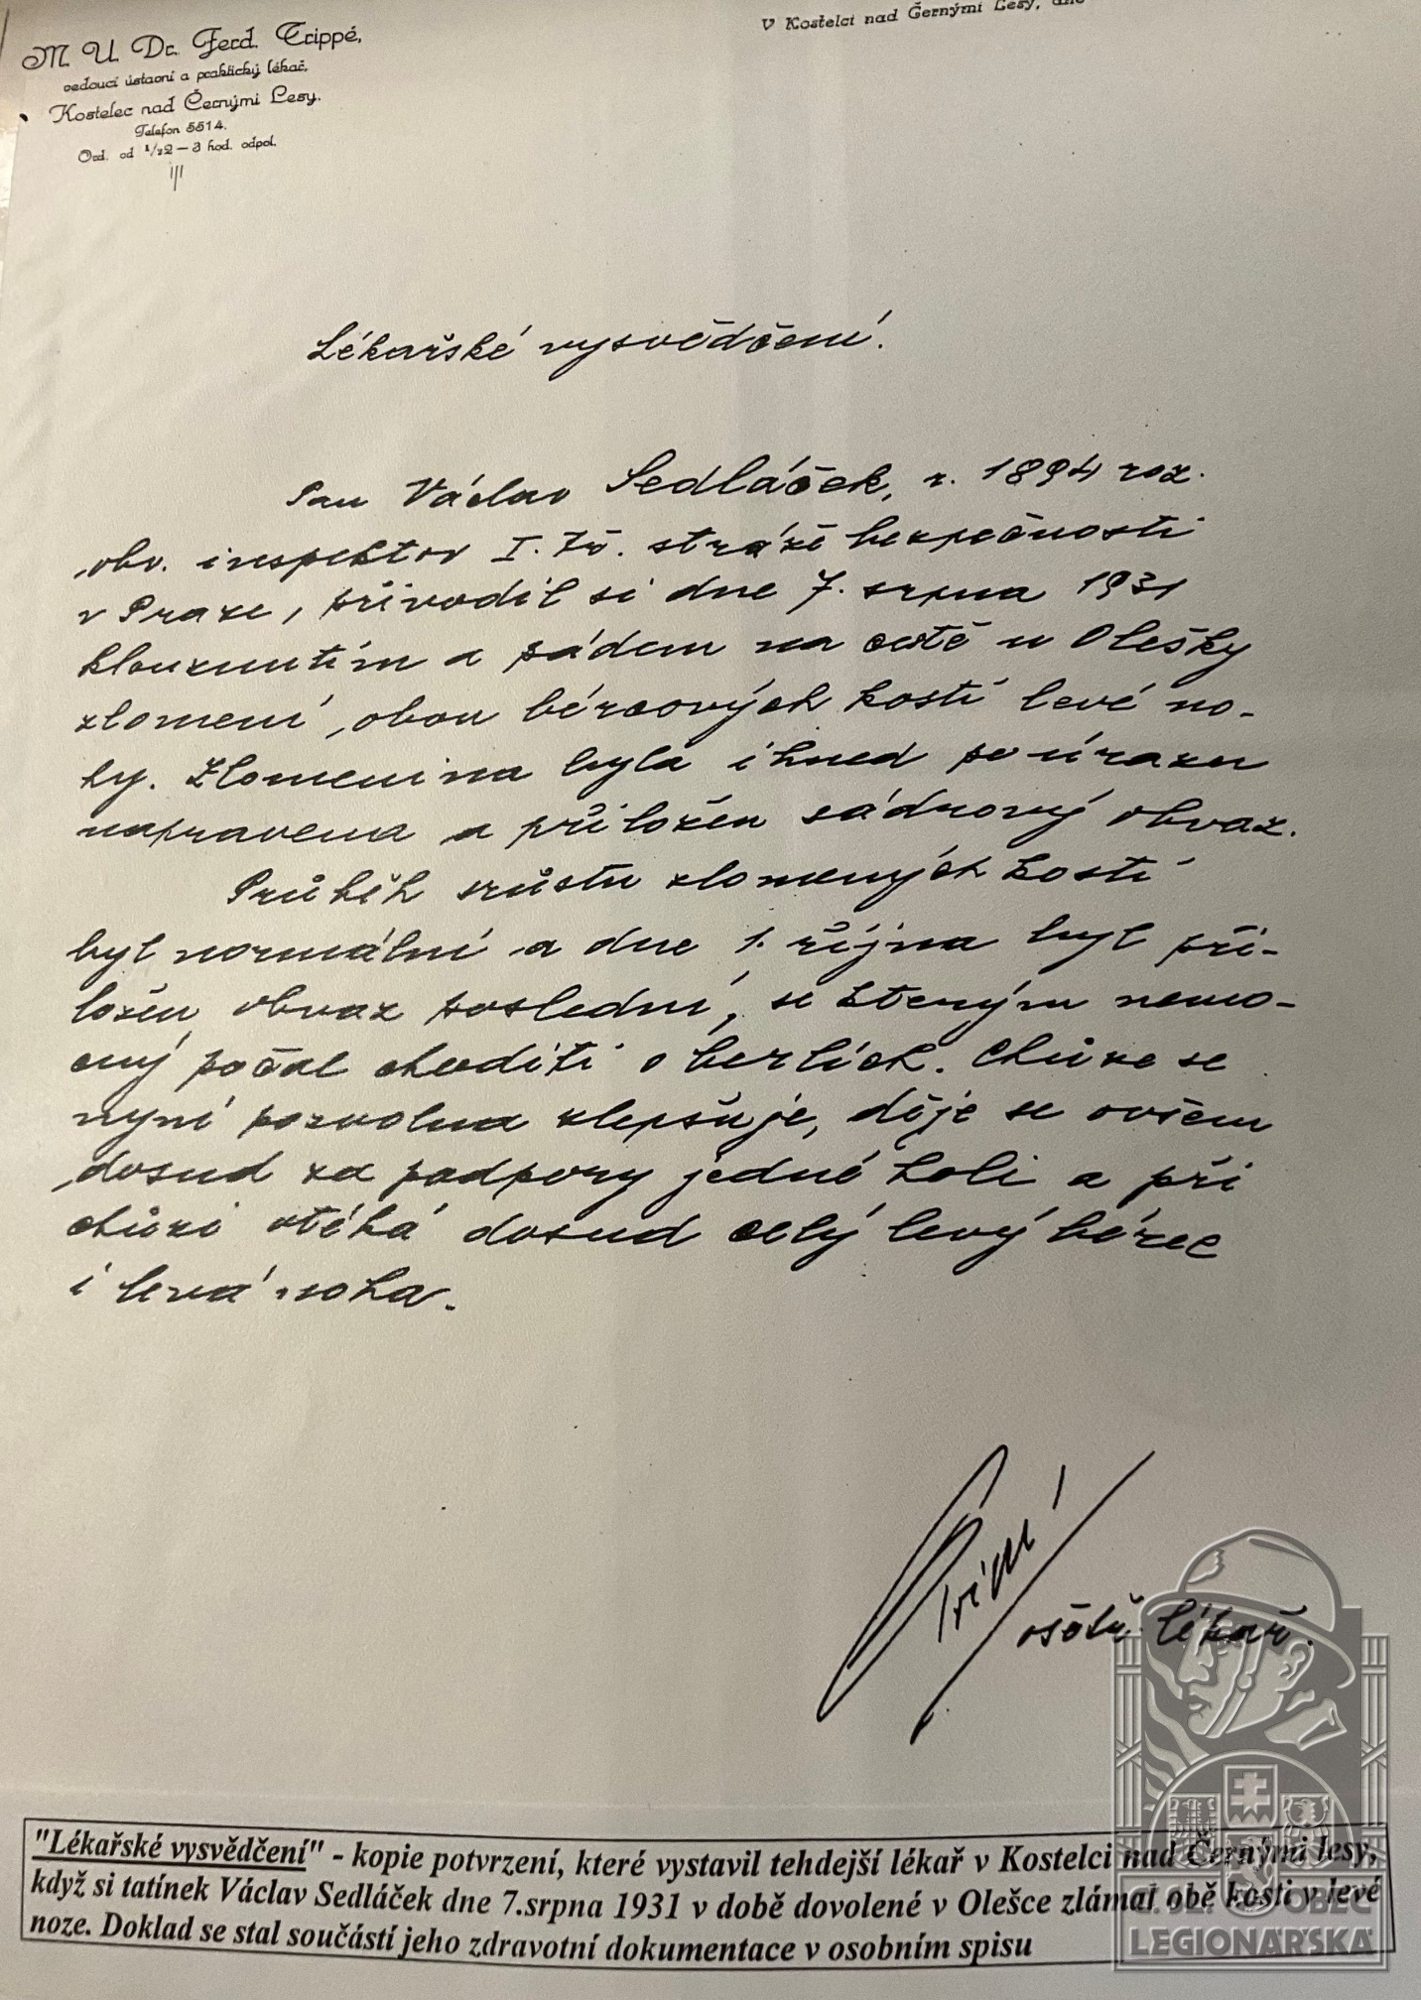 M. U. Dr. Ferd. Trippé,
vedoucí ústavní a praktický lékař,
Kostelec nad Černými Lesy.
Telefon 5514.
Ord. od ½2 – 3 hod. odpol.
V Kostelci nad Černými Lesy, dne
Lékařské vysvědčení.
Pan Václav Sedláček, r. 1894 roz.
obv. inspektor I. tř. stráže bezpečnosti
v Praze, přivodil si dne 7. srpna 1931
klouznutím a pádem na cestě u Olešky
zlomení obou bércových kostí levé no-
hy. Zlomenina byla ihned po úrazu
napravena a přiložen sádrový obvaz.
Průběh srůstu zlomených kostí
byl normální a dne 1. října byl při-
ložen obvaz poslední, se kterým nemo-
cný počal choditi o berlích. Chůze se
nyní pozvolna zlepšuje, děje se ovšem
dosud za podpory jedné holi a při
chůzi otéká dosud celý levý bérec
i levá noha.
ošetř. lékař.
"Lékařské vysvědčení" - kopie potvrzení, které vystavil tehdejší lékař v Kostelci nad Černými lesy,
když si tatínek Václav Sedláček dne 7.srpna 1931 v době dovolené v Olešce zlámal obě kosti v levé
noze. Doklad se stal součástí jeho zdravotní dokumentace v osobním spisu
OBEC
LEGIONÁŘSKÁ